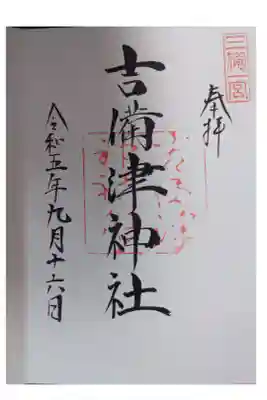 三備一宮
奉拝
吉備津神社
令和五年九月十六日